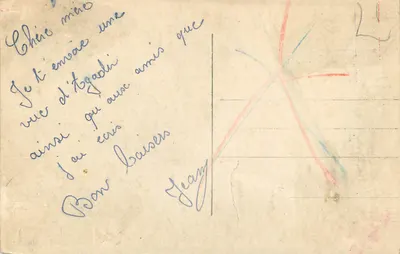 Chère mère
Je t'envoie une
vue d'Agadir
ainsi qu'aux amis que
j'ai écris
Bon baisers
Jean